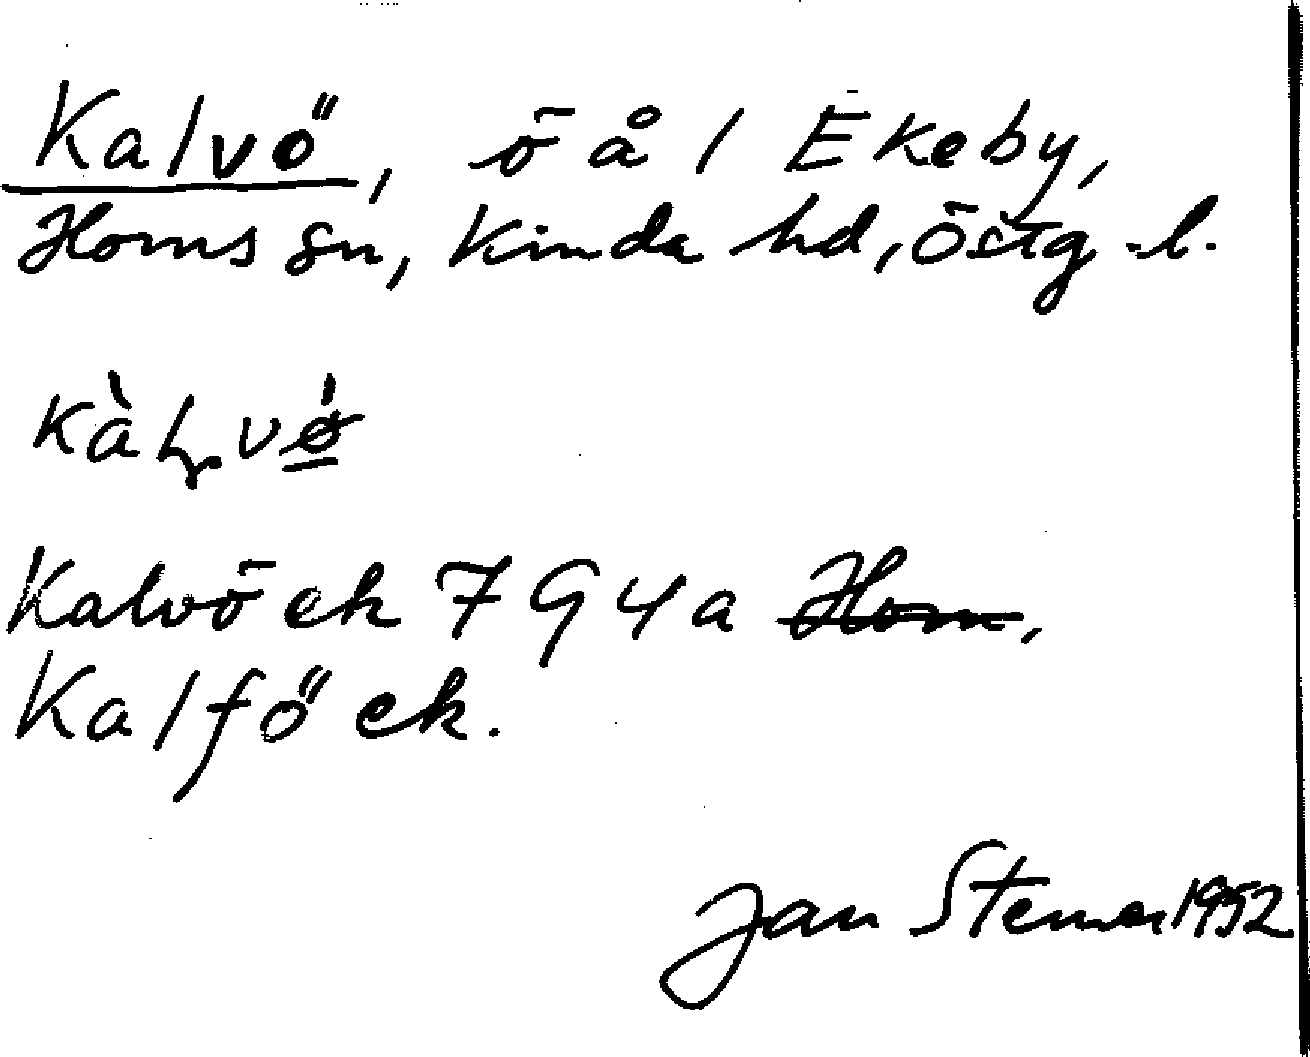 Kalvö, ö å 1 Ekeby,
Horns sn, Kinda hd, Östg l.
Kalvö ek 794a Horn,
Kalfö ek.
Jan 1952